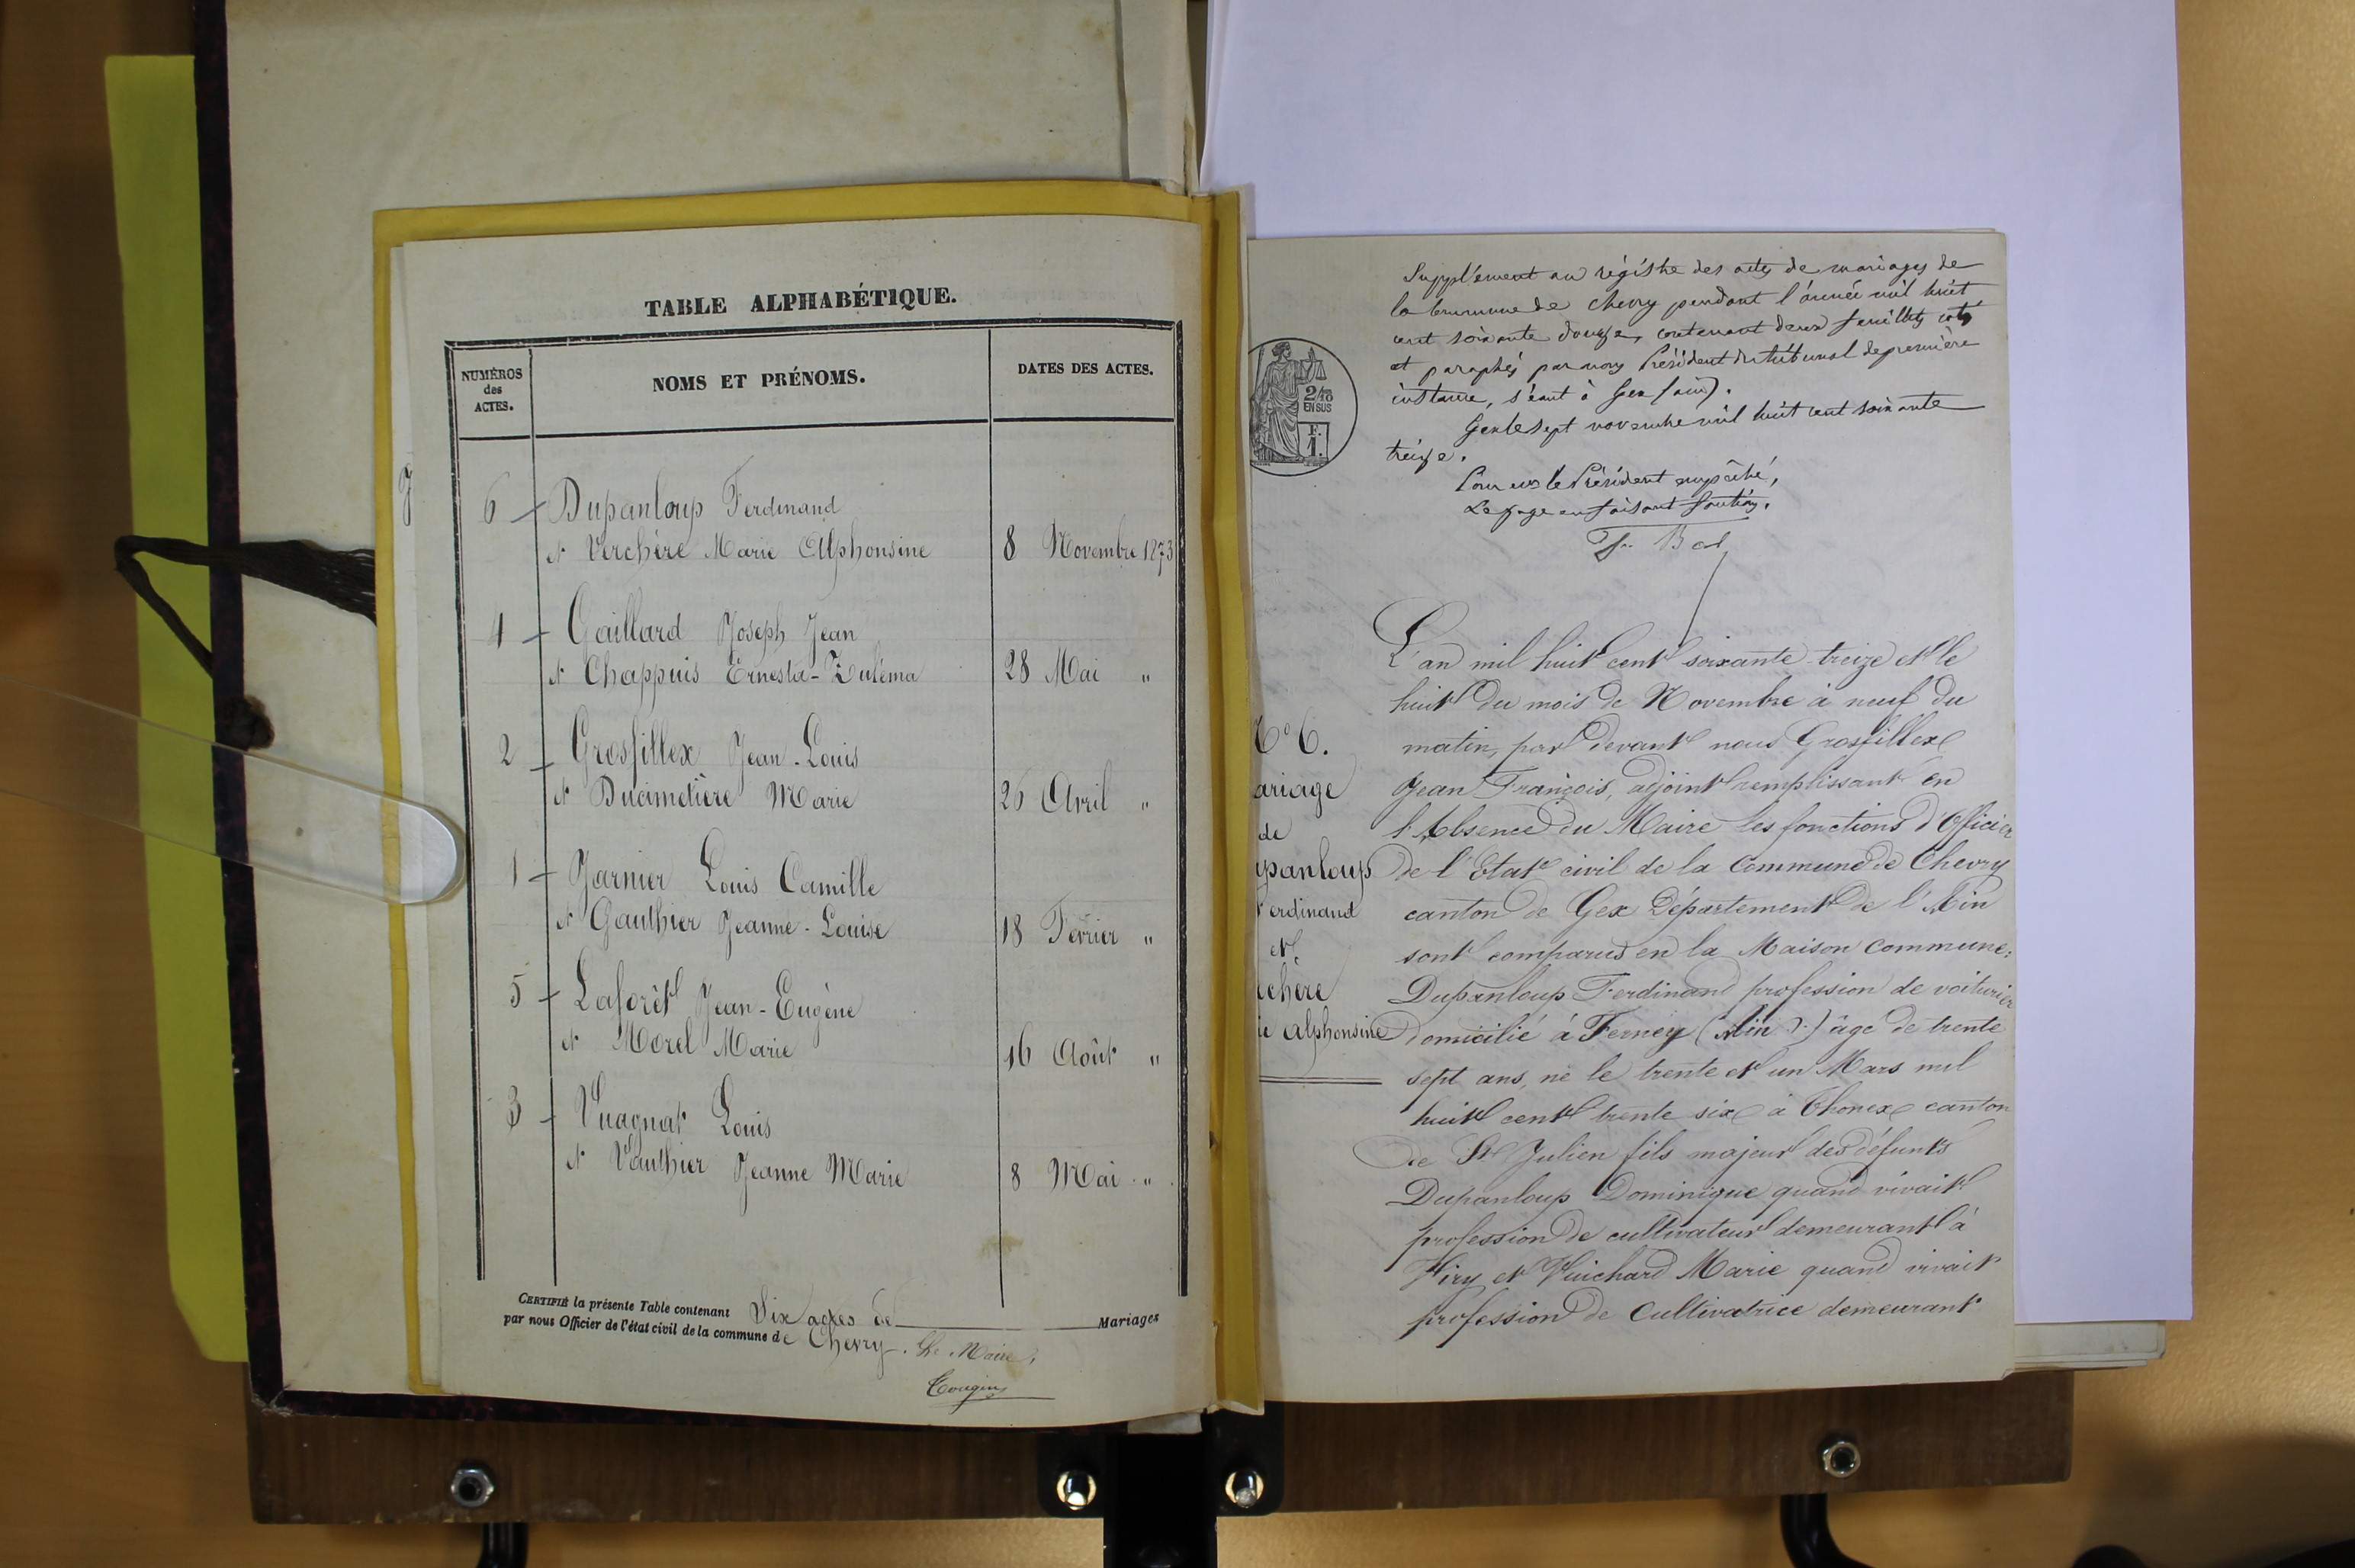 TABLE ALPHABÉTIQUE.
NUMÉROS des ACTES.
NOMS ET PRÉNOMS.
DATES DES ACTES.
6 Dupanloup Ferdinand
et Verchère Marie Alphonsine 8 Novembre 1873
4 Gaillard Joseph Jean
et Chappuis Ernesta-Zuléma 28 Mai "
2 Grosfillex Jean-Louis
et Ducimetière Marie 26 Avril "
1 Jarnier Louis Camille
et Gauthier Jeanne-Louise 18 Février "
5 Laforêt Jean-Eugène
et Morel Marie 16 Août "
3 Vuagnat Louis
et Vauthier Jeanne Marie 8 Mai "
CERTIFIÉ la présente Table contenant Six actes de Mariages
par nous Officier de l'état civil de la commune de Chevry. Le Maire,
Supplément au régistre des actes de mariages de
la commune de Chevry pendant l'année mil huit
cent soixante douze, contenant deux feuillets cotés
et paraphés par nous Président du tribunal de première
instance, séant à Gex (ain).
Gex le sept novembre mil huit cent soixante
treize.
Pour le Président empêché,
Le juge en faisant fonction.
2/10
EN SUS
F.
1.
L'an mil huit cent soixante-treize et le
huit du mois de Novembre à neuf du
matin, par devant nous Grosfillex
Jean François, adjoint remplissant en
l'Absence du Maire les fonctions d'Officier
de l'Etat civil de la Commune de Chevry
canton de Gex Département de l'Ain
sont comparus en la Maison commune;
Dupanloup Ferdinand profession de voiturier
domicilié à Ferney (Ain) âgé de trente
sept ans, né le trente et un Mars mil
huit cent trente six à Thonex canton
de St Julien fils majeur des défunts
Dupanloup Dominique quand vivait
profession de cultivateur demeurant à
Viry et Vuichard Marie quand vivait
profession de Cultivatrice demeurant
№ 6.
ariage
de
upanloup
Ferdinand
et
rchère
ie Alphonsine